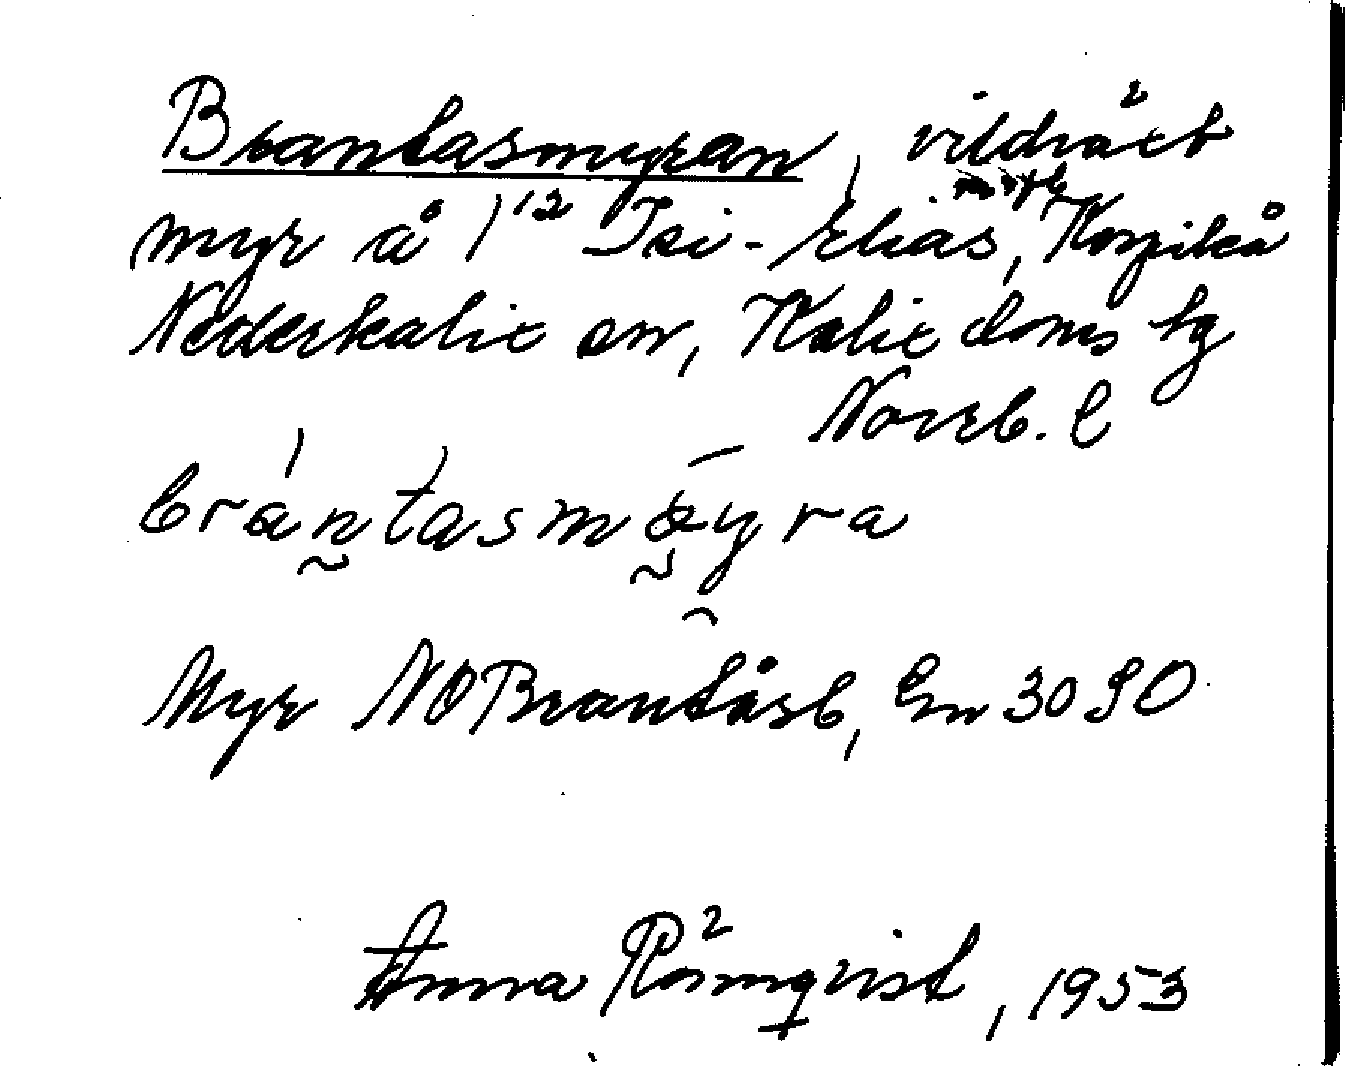 Brantasmyran, vildväxt
myr å 1¹² Isi-Elias, Korpikå
Nederkalix sn, Kalix doms tg
Norrb. l
brantasmøyra
Myr NO Brantåsb, En 30 SO
Anna Römqvist, 1953